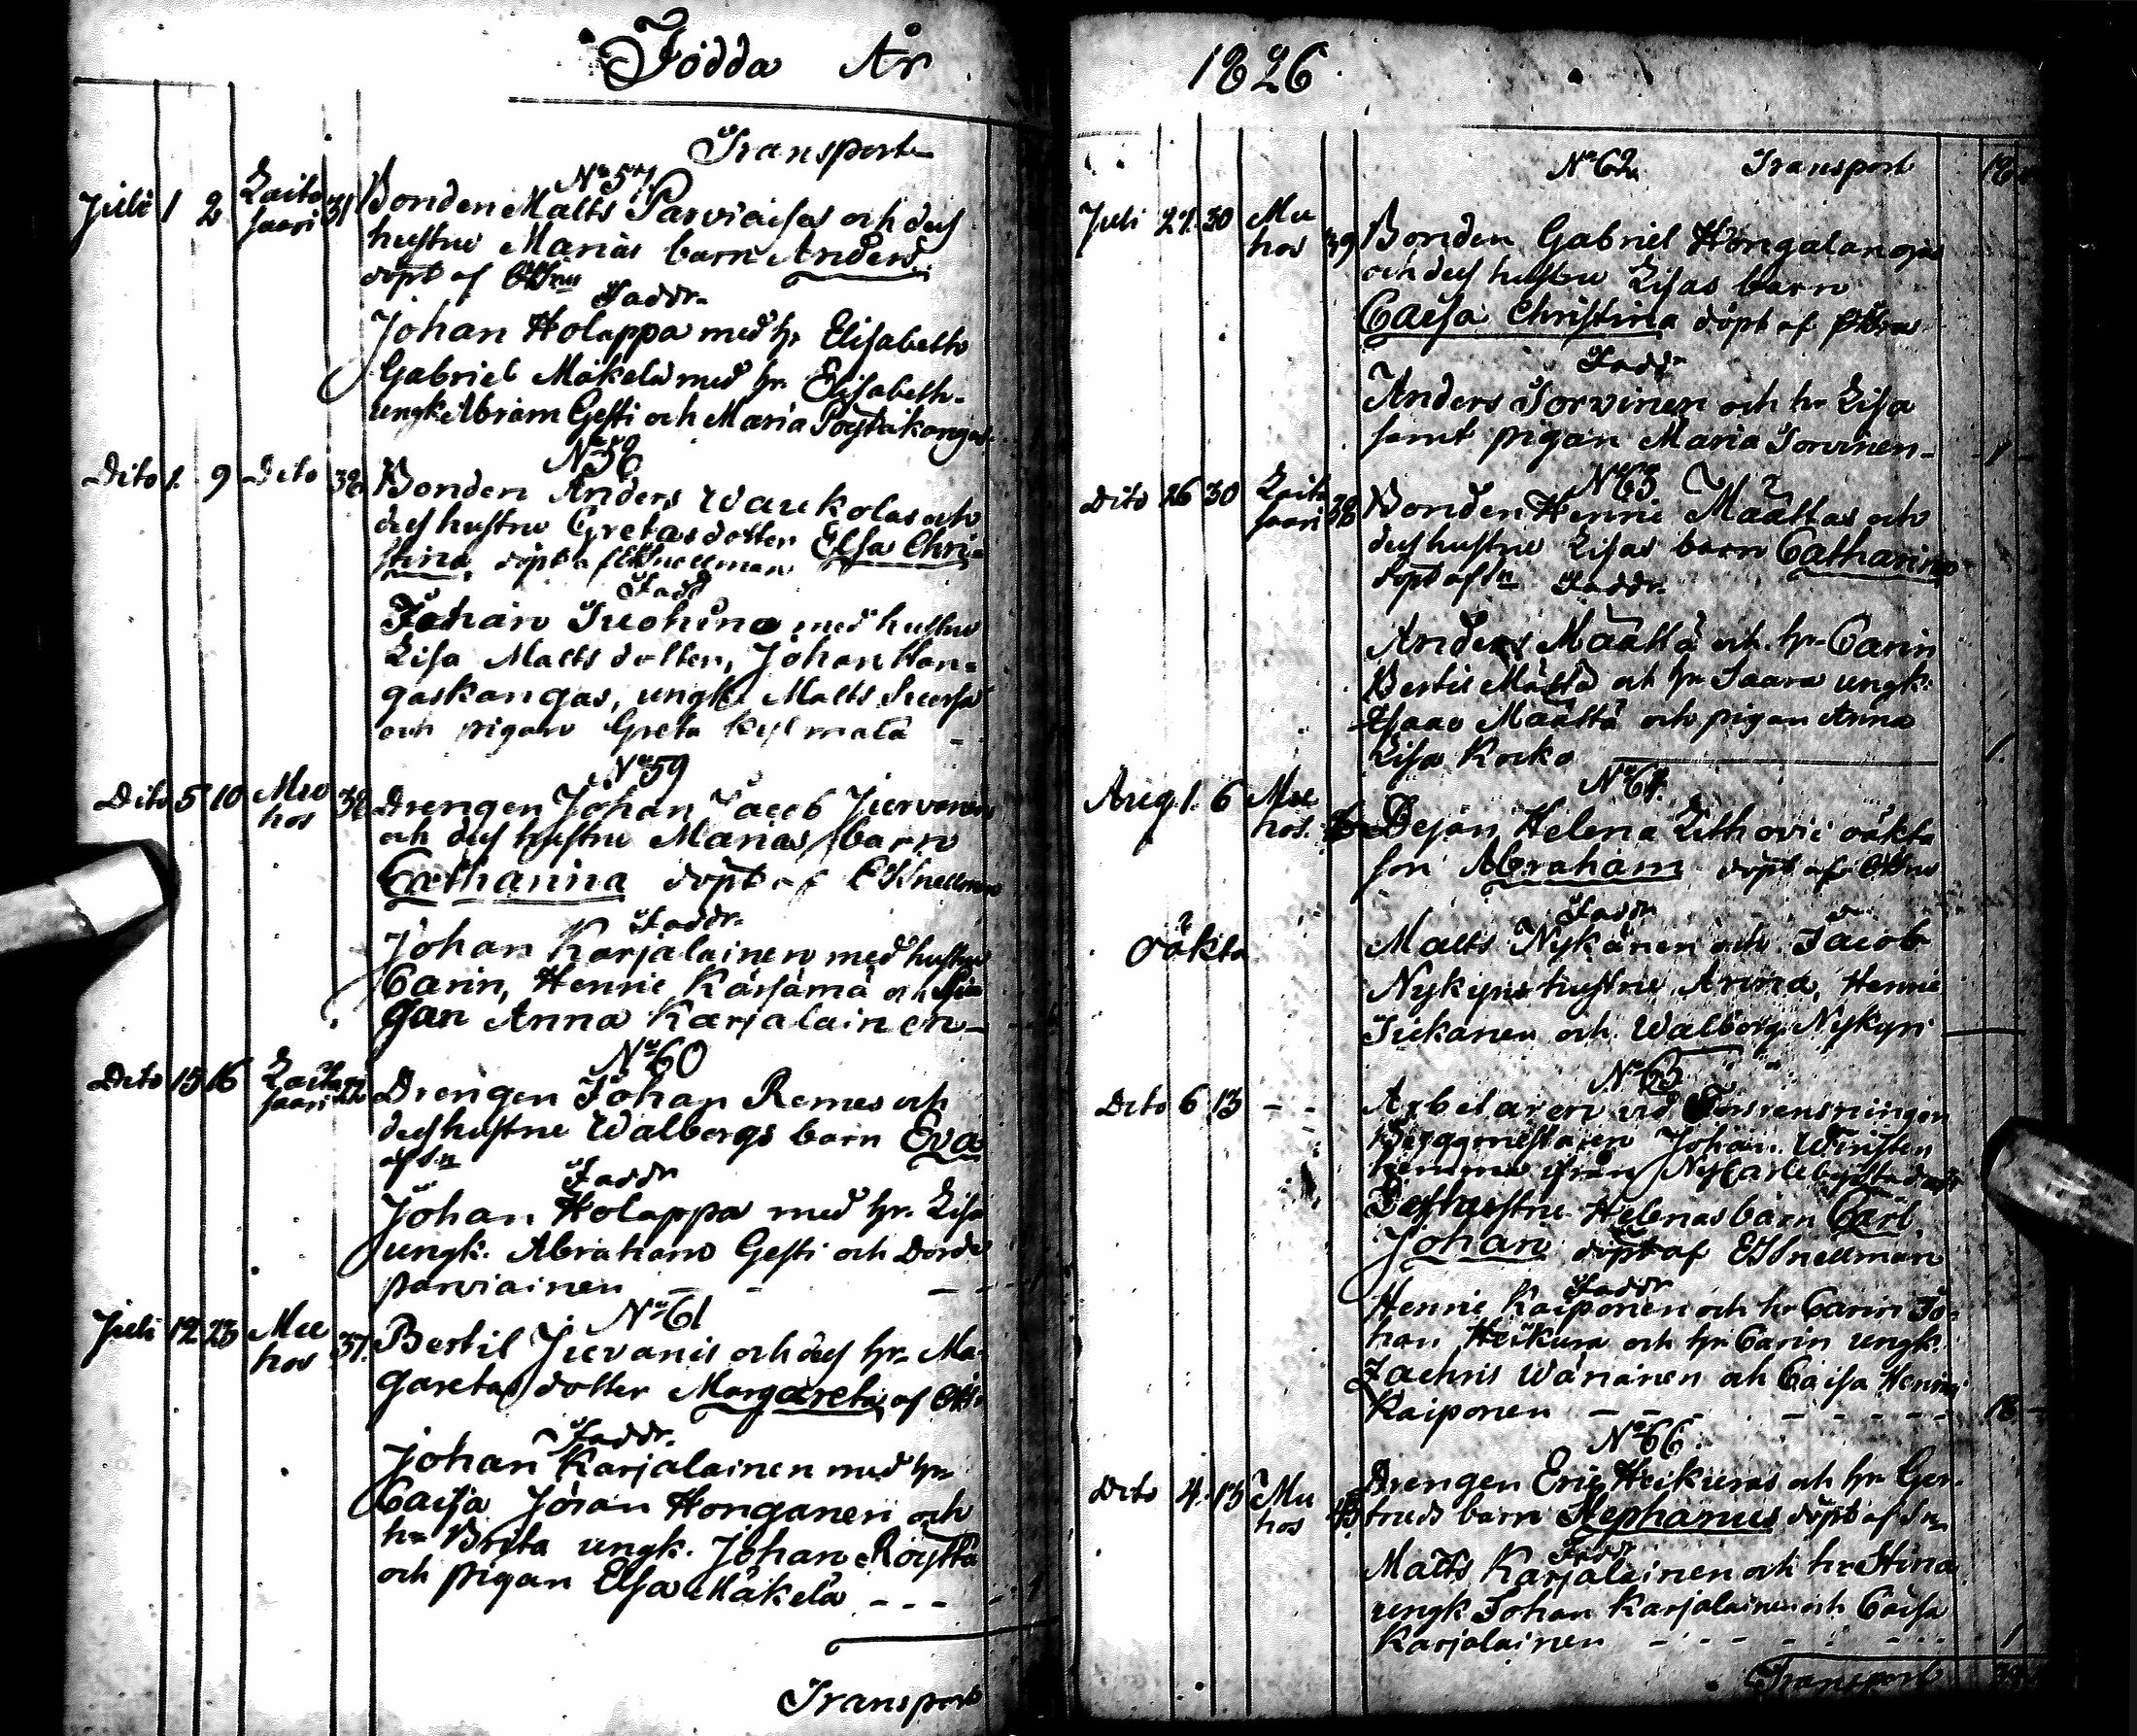 Födda År
Transport
No 57
Juli 1 2 Laitasaari 31 Bonden Matts Parviaisas och dess
hustru Marias barn Anders
döpt af
Faddr.
Johan Holappa med hr Elisabeth
Gabriel Mäkelä med hr. Elisabeth
ungk. Abram Gesti och Maria
No 58
Dito 1. 9 Dito 32 Bonden Anders Waukolas och
dess hustru Gretas dotter Elsa Chri=
stina döpt af EJSnellman
Fadd
Johan Tuohino med hustru
Lisa Matts dotter, Johan Han=
gaskangas, ungk. Matts
och pigan Greta Kylmälä
No 59
Dito 5 10 Muhos Drengen Johan Jacob
och dess hustru Marias barn
Catharina döpt af EJSnellman
Faddr.
Johan Karjalainen med hustru
Carin, Henric Kärsämä och Pi
gan Anna Karjalainen
No 60
Dito 15 16 Laitasaari Drengen Johan Remes och
dess hustru Walborgs barn Eva
af Sn
Faddr
Johan Holappa med hr. Lisa
ungk. Abraham Gesti och Dorde
Parviainen
No 61
Juli 12 23 Muhos 37. Bertil Juvanis och dess hr. Ma
garetas dotter Margareta af
Faddr.
Johan Karjalainen med hr
Caisa Jöran Honganen och
hr Brita ungk. Johan Röyttä
och pigan Elsa Mäkelä - - -
Transport
1826.
No 62 Transport
Juli 27. 30 Muhos 39 Bonden Gabriel Hongalanojas
och dess hustru Lisas barn
Caisa Christina döpt af
Faddr
Anders Torvinen och hr Lisa
samt pigan Maria Torvinen - 1
No 63
Dito 26 30 Laitasaari 38 Bonden Henric Määttas och
dess hustru Lisas barn Catharina
döpt af Sn Faddr.
Anders Määttä och hr. Carin
Bertil Määttä och hr Saara ungk.
Isaac Määttä och pigan Anna
Lisa Kocko 1
No 64
Aug. 1. 6 Muhos. Pejan Helena Lithovii oäkta
son Abraham döpt af
Faddr
oäkta Matts Nykänen och Jacob
Nykyris hustru Anna, Henric
Tickanen och Walborg Nykyri
No 65
Dito 6 13 - - Arbetaren vid Forsrensningen
Byggmästaren Johan
hemma ifrån NyCarleby
Dess hustru Helenas barn Carl
Johan döpt af EJSnellman
Faddr
Henric Kaiponen och hr Carin Jo=
han Heikura och hr Carin ungk.
Zachris Wänänen och Caisa
Kaiponen - - - - - - - 18
No 66
Dito 4. 13 Muhos Drengen Eric Heikuras och hr Ger
truds barn Stephanus döpt af Sn
Fadd
Matts Karjalainen och hr Stina
ungk Johan Karjalainen och Caisa
Karjalainen - - - - - - 1
Transport